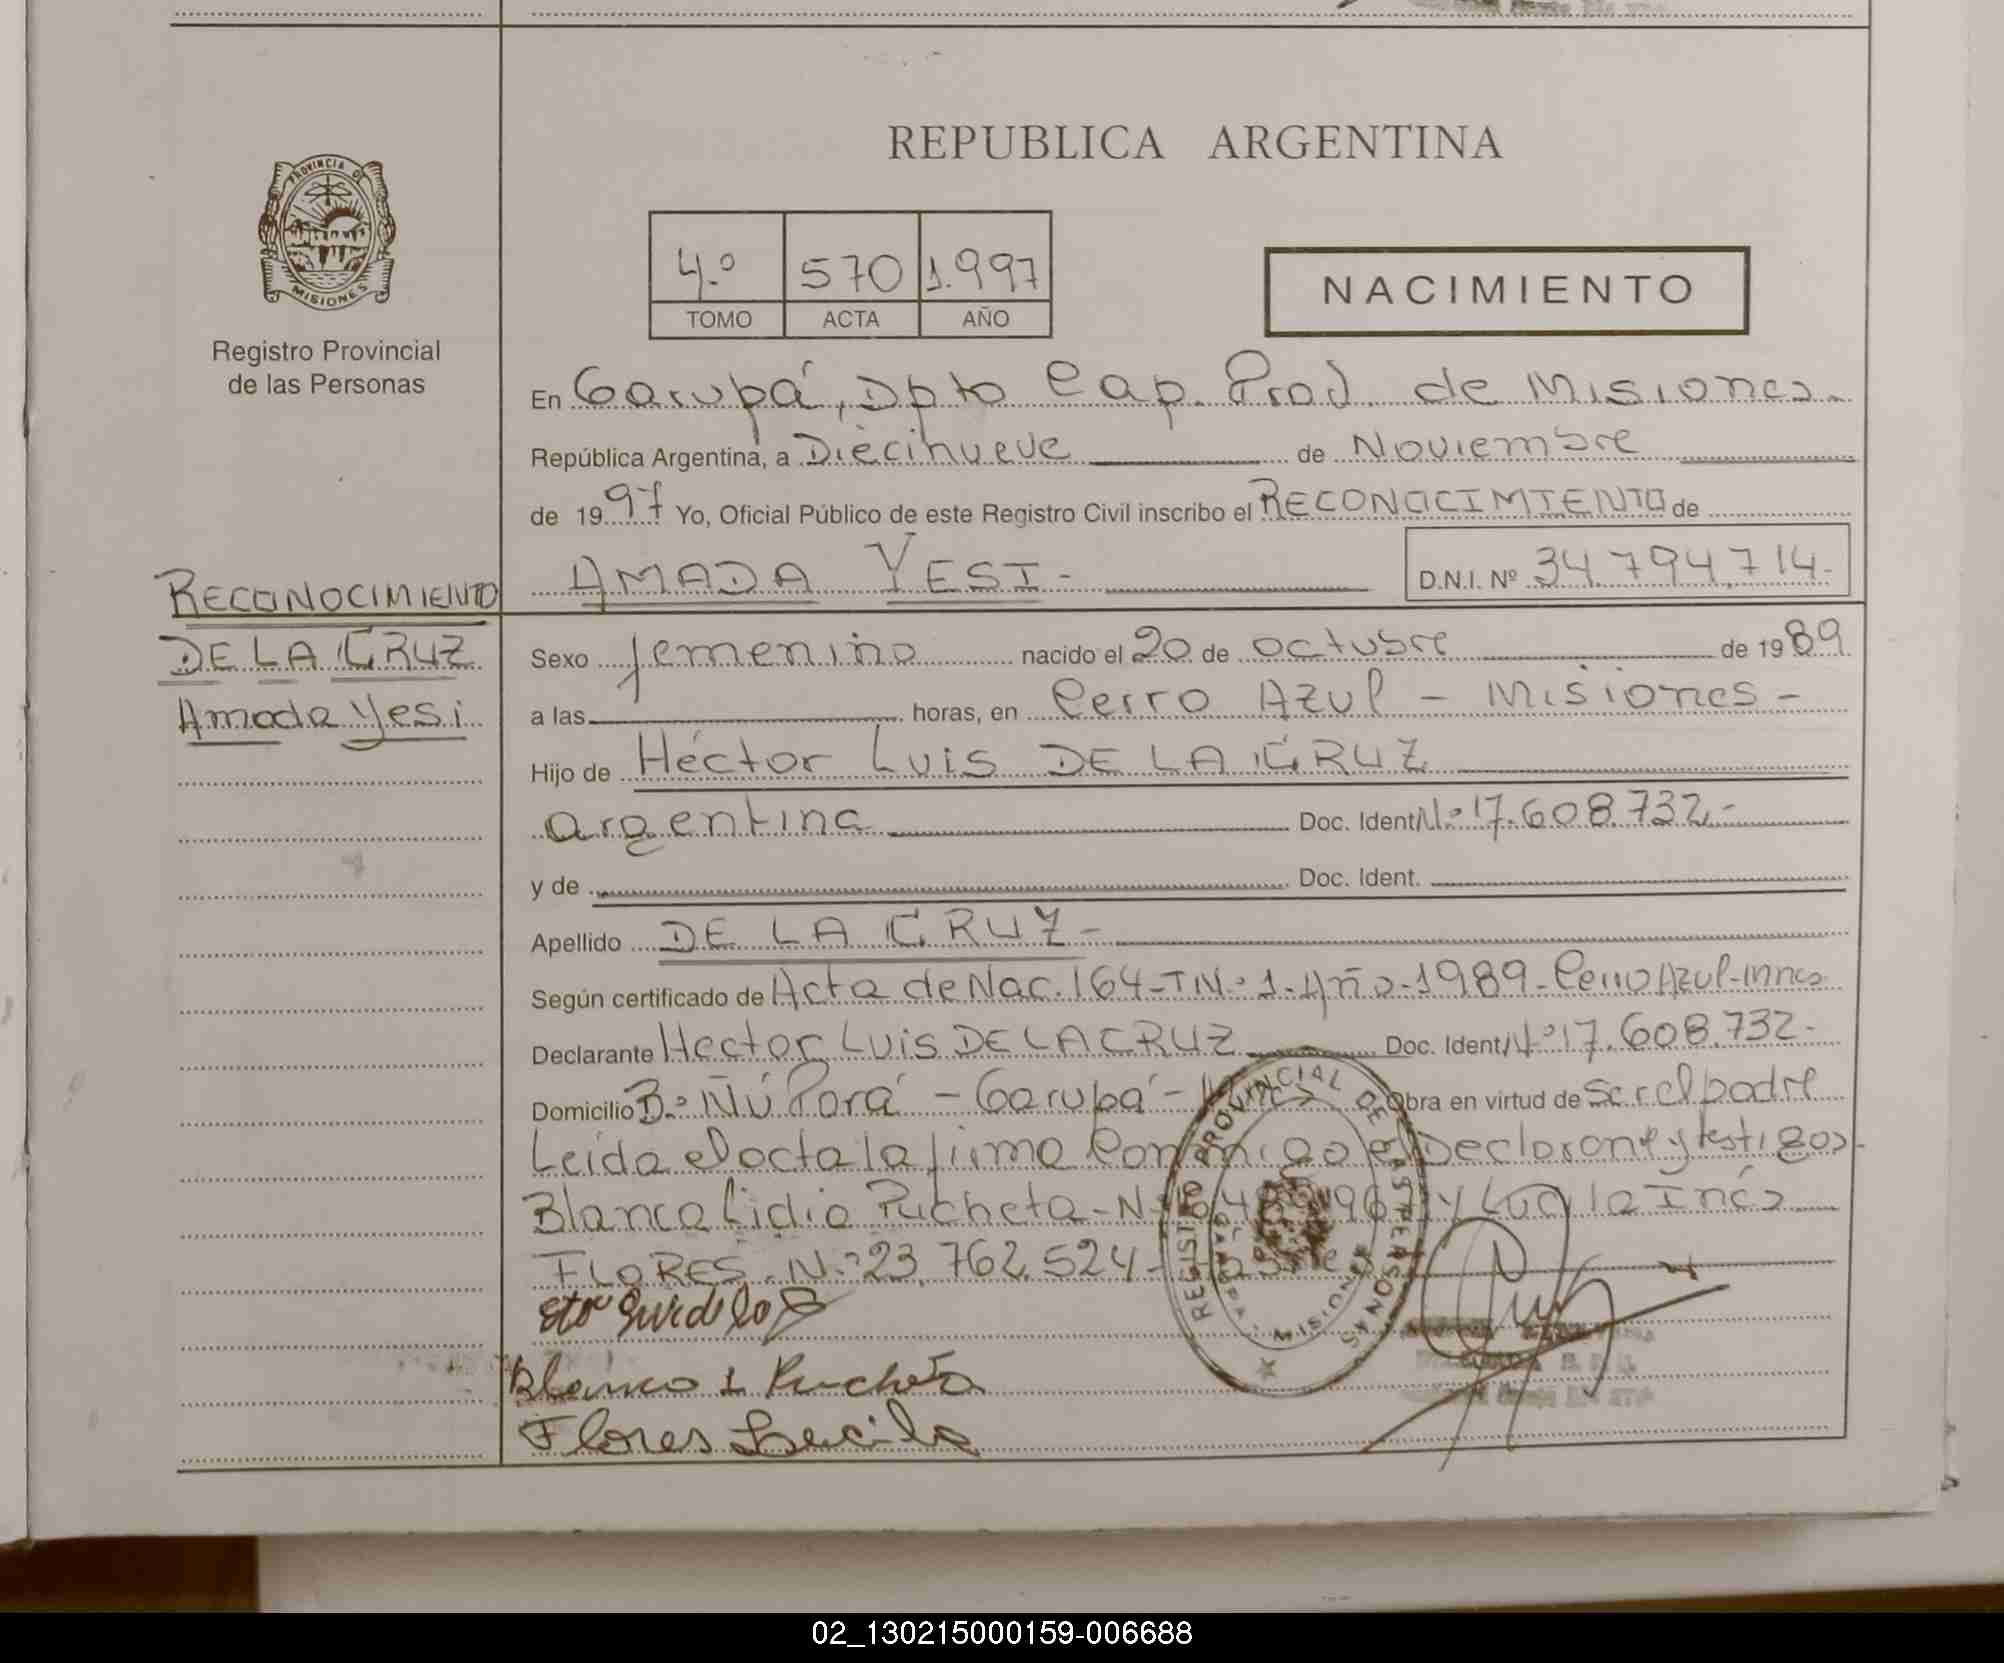 PROVINCIA DE
MISIONES
Registro Provincial
de las Personas
REPUBLICA ARGENTINA
4.º 570 1.997
TOMO ACTA AÑO
NACIMIENTO
En Garupá, Dpto Cap. Prov. de Misiones.
República Argentina, a Diecinueve de Noviembre
de 1997 Yo, Oficial Público de este Registro Civil inscribo el RECONOCIMIENTO de
AMADA YESI- D.N.I. Nº 34.794.714-
RECONOCIMIENTO
DE LA CRUZ
Amada Yesi
Sexo femenino nacido el 20 de octubre de 1989
a las horas, en Cerro Azul - Misiones -
Hijo de Héctor Luis DE LA CRUZ
argentina Doc. Ident. Nº 17.608.732-
y de Doc. Ident.
Apellido DE LA CRUZ-
Según certificado de Acta de Nac. 164-TNº 1-Año-1989-Cerro Azul-Mnes
Declarante Hector Luis DE LA CRUZ Doc. Ident. Nº 17.608.732-
Domicilio B.º Ñú Porá - Garupá - Obra en virtud de ser el padre
Leida el acta la firma Conmigo el Declarante y testigos-
Blanca Lidia Pucheta-N y Lucila Inés
FLORES. Nº 23.762.524-
Blanca L Pucheta
Flores Lucila
REGISTRO PROVINCIAL DE LAS PERSONAS
MISIONES
02_130215000159-006688